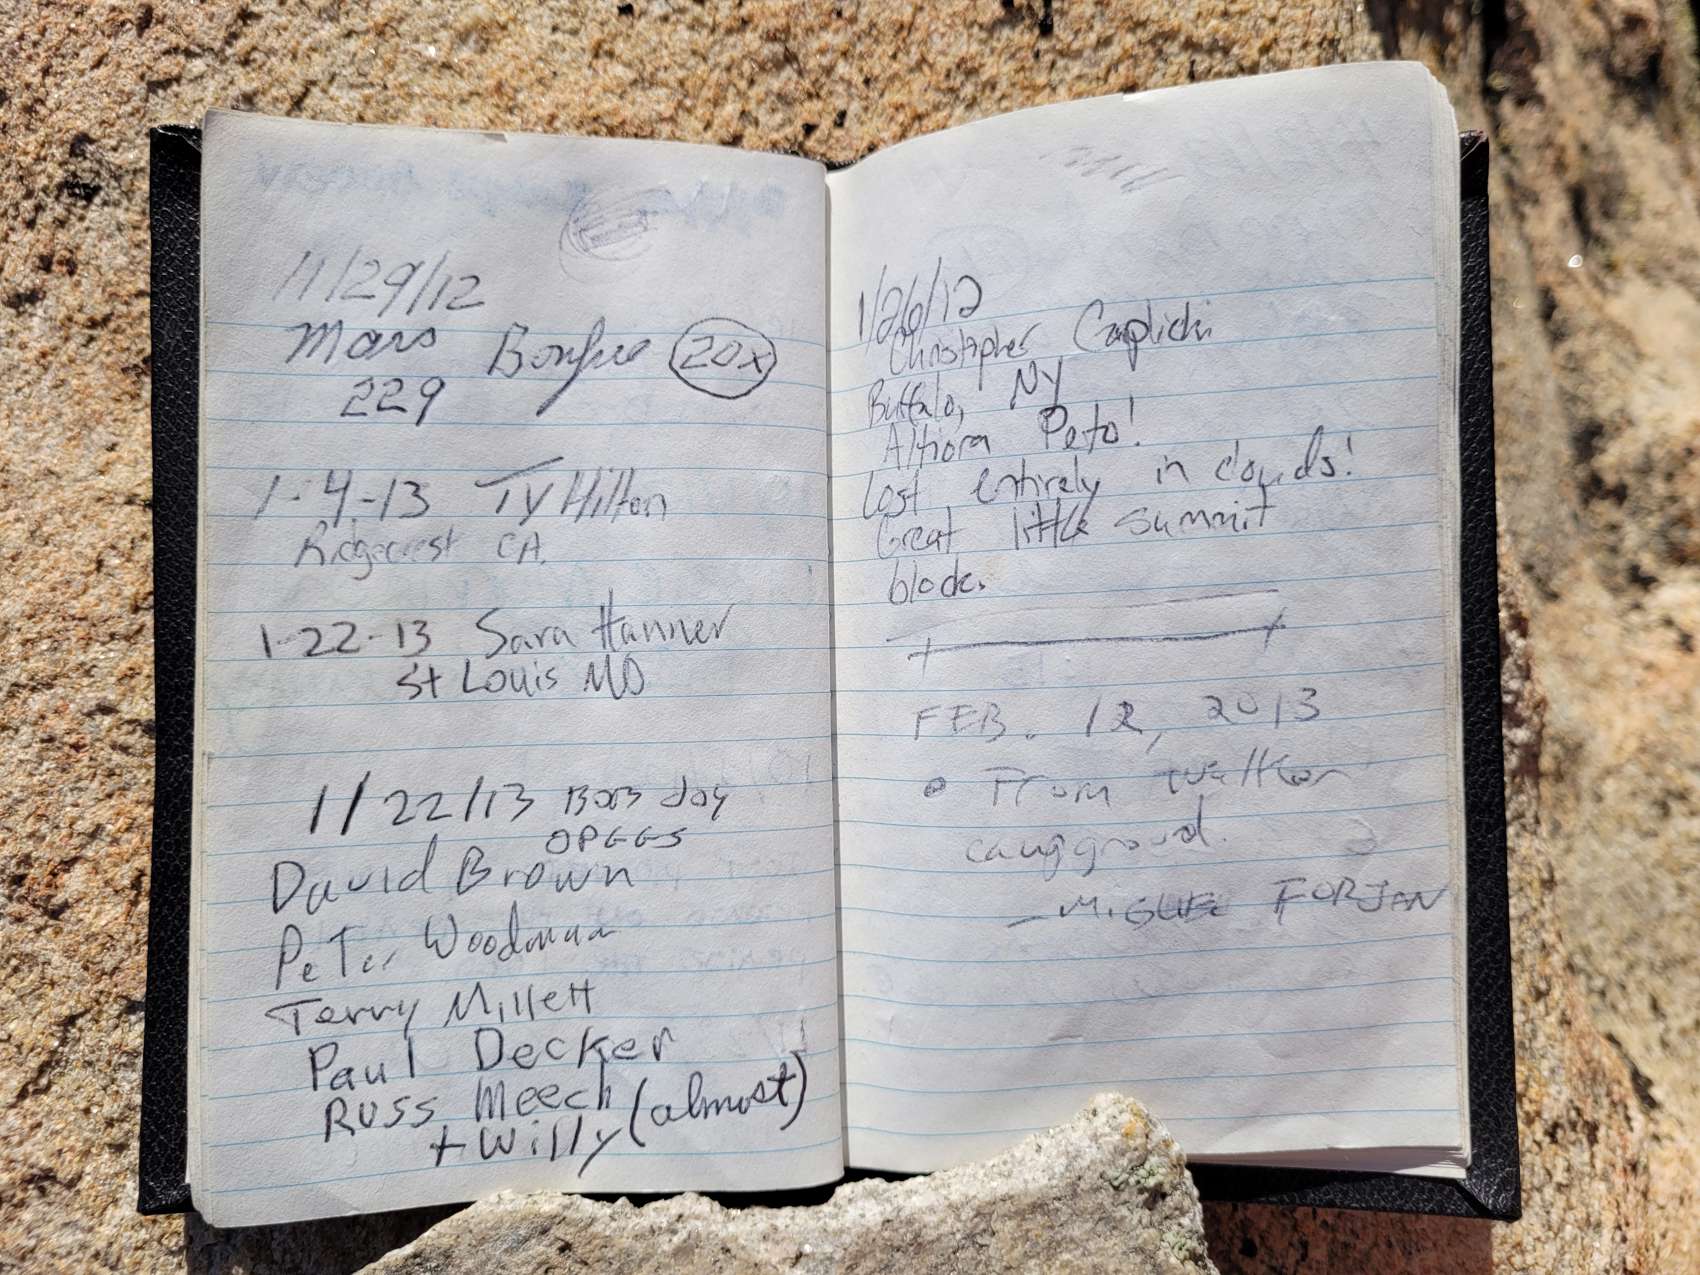 11/29/12
Mars Bonfire 20x
229
1-4-13 Ty Hilton
Ridgecrest CA.
1-22-13 Sara Hanner
St Louis MO
1/22/13 Bobs day
OPGGS
David Brown
Peter Woodman
Terry Millett
Paul Decker
Russ Meech
+ Willy (almost)
1/26/12
Christopher
Buffalo, NY
Altiora Peto!
Lost entirely in clouds!
Great little summit
block.
FEB. 12, 2013
From Walker
campground.
- MIGUEL FORJAN